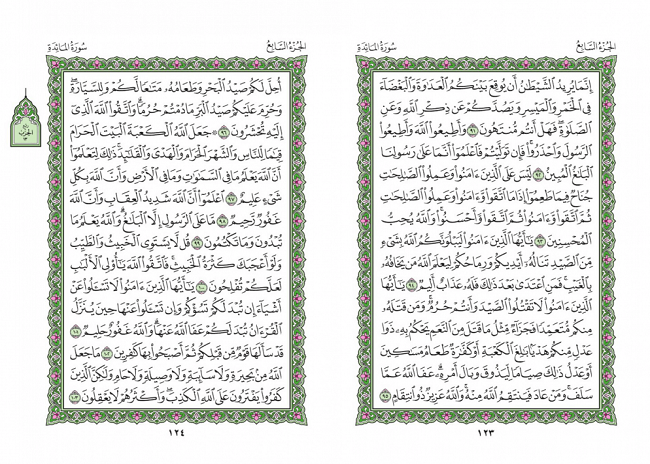 الجزء السابع
سورة المائدة
إِنَّمَا يُرِيدُ ٱلشَّيْطَٰنُ أَن يُوقِعَ بَيْنَكُمُ ٱلْعَدَٰوَةَ وَٱلْبَغْضَآءَ
فِى ٱلْخَمْرِ وَٱلْمَيْسِرِ وَيَصُدَّكُمْ عَن ذِكْرِ ٱللَّهِ وَعَنِ
ٱلصَّلَوٰةِ فَهَلْ أَنتُم مُّنتَهُونَ ٩١ وَأَطِيعُوا۟ ٱللَّهَ وَأَطِيعُوا۟
ٱلرَّسُولَ وَٱحْذَرُوا۟ فَإِن تَوَلَّيْتُمْ فَٱعْلَمُوٓا۟ أَنَّمَا عَلَىٰ رَسُولِنَا
ٱلْبَلَٰغُ ٱلْمُبِينُ ٩٢ لَيْسَ عَلَى ٱلَّذِينَ ءَامَنُوا۟ وَعَمِلُوا۟ ٱلصَّٰلِحَٰتِ
جُنَاحٌ فِيمَا طَعِمُوٓا۟ إِذَا مَا ٱتَّقَوا۟ وَّءَامَنُوا۟ وَعَمِلُوا۟ ٱلصَّٰلِحَٰتِ
ثُمَّ ٱتَّقَوا۟ وَّءَامَنُوا۟ ثُمَّ ٱتَّقَوا۟ وَّأَحْسَنُوا۟ وَٱللَّهُ يُحِبُّ
ٱلْمُحْسِنِينَ ٩٣ يَٰٓأَيُّهَا ٱلَّذِينَ ءَامَنُوا۟ لَيَبْلُوَنَّكُمُ ٱللَّهُ بِشَىْءٍ
مِّنَ ٱلصَّيْدِ تَنَالُهُۥٓ أَيْدِيكُمْ وَرِمَاحُكُمْ لِيَعْلَمَ ٱللَّهُ مَن يَخَافُهُۥ
بِٱلْغَيْبِ فَمَنِ ٱعْتَدَىٰ بَعْدَ ذَٰلِكَ فَلَهُۥ عَذَابٌ أَلِيمٌ ٩٤ يَٰٓأَيُّهَا
ٱلَّذِينَ ءَامَنُوا۟ لَا تَقْتُلُوا۟ ٱلصَّيْدَ وَأَنتُمْ حُرُمٌ وَمَن قَتَلَهُۥ
مِنكُم مُّتَعَمِّدًا فَجَزَآءٌ مِّثْلُ مَا قَتَلَ مِنَ ٱلنَّعَمِ يَحْكُمُ بِهِۦ ذَوَا
عَدْلٍ مِّنكُمْ هَدْيًۢا بَٰلِغَ ٱلْكَعْبَةِ أَوْ كَفَّٰرَةٌ طَعَامُ مَسَٰكِينَ
أَوْ عَدْلُ ذَٰلِكَ صِيَامًا لِّيَذُوقَ وَبَالَ أَمْرِهِۦ عَفَا ٱللَّهُ عَمَّا
سَلَفَ وَمَنْ عَادَ فَيَنتَقِمُ ٱللَّهُ مِنْهُ وَٱللَّهُ عَزِيزٌ ذُو ٱنتِقَامٍ ٩٥
١٢٣
الجزء السابع
سورة المائدة
أُحِلَّ لَكُمْ صَيْدُ ٱلْبَحْرِ وَطَعَامُهُۥ مَتَٰعًا لَّكُمْ وَلِلسَّيَّارَةِ
وَحُرِّمَ عَلَيْكُمْ صَيْدُ ٱلْبَرِّ مَا دُمْتُمْ حُرُمًا وَٱتَّقُوا۟ ٱللَّهَ ٱلَّذِىٓ
إِلَيْهِ تُحْشَرُونَ ٩٦ جَعَلَ ٱللَّهُ ٱلْكَعْبَةَ ٱلْبَيْتَ ٱلْحَرَامَ
قِيَٰمًا لِّلنَّاسِ وَٱلشَّهْرَ ٱلْحَرَامَ وَٱلْهَدْىَ وَٱلْقَلَٰٓئِدَ ذَٰلِكَ لِتَعْلَمُوٓا۟
أَنَّ ٱللَّهَ يَعْلَمُ مَا فِى ٱلسَّمَٰوَٰتِ وَمَا فِى ٱلْأَرْضِ وَأَنَّ ٱللَّهَ بِكُلِّ
شَىْءٍ عَلِيمٌ ٩٧ ٱعْلَمُوٓا۟ أَنَّ ٱللَّهَ شَدِيدُ ٱلْعِقَابِ وَأَنَّ ٱللَّهَ
غَفُورٌ رَّحِيمٌ ٩٨ مَّا عَلَى ٱلرَّسُولِ إِلَّا ٱلْبَلَٰغُ وَٱللَّهُ يَعْلَمُ مَا
تُبْدُونَ وَمَا تَكْتُمُونَ ٩٩ قُل لَّا يَسْتَوِى ٱلْخَبِيثُ وَٱلطَّيِّبُ
وَلَوْ أَعْجَبَكَ كَثْرَةُ ٱلْخَبِيثِ فَٱتَّقُوا۟ ٱللَّهَ يَٰٓأُو۟لِى ٱلْأَلْبَٰبِ
لَعَلَّكُمْ تُفْلِحُونَ ١٠٠ يَٰٓأَيُّهَا ٱلَّذِينَ ءَامَنُوا۟ لَا تَسْـَٔلُوا۟ عَنْ
أَشْيَآءَ إِن تُبْدَ لَكُمْ تَسُؤْكُمْ وَإِن تَسْـَٔلُوا۟ عَنْهَا حِينَ يُنَزَّلُ
ٱلْقُرْءَانُ تُبْدَ لَكُمْ عَفَا ٱللَّهُ عَنْهَا وَٱللَّهُ غَفُورٌ حَلِيمٌ ١٠١
قَدْ سَأَلَهَا قَوْمٌ مِّن قَبْلِكُمْ ثُمَّ أَصْبَحُوا۟ بِهَا كَٰفِرِينَ ١٠٢ مَا جَعَلَ
ٱللَّهُ مِنۢ بَحِيرَةٍ وَلَا سَآئِبَةٍ وَلَا وَصِيلَةٍ وَلَا حَامٍ وَلَٰكِنَّ ٱلَّذِينَ
كَفَرُوا۟ يَفْتَرُونَ عَلَى ٱللَّهِ ٱلْكَذِبَ وَأَكْثَرُهُمْ لَا يَعْقِلُونَ ١٠٣
١٢٤